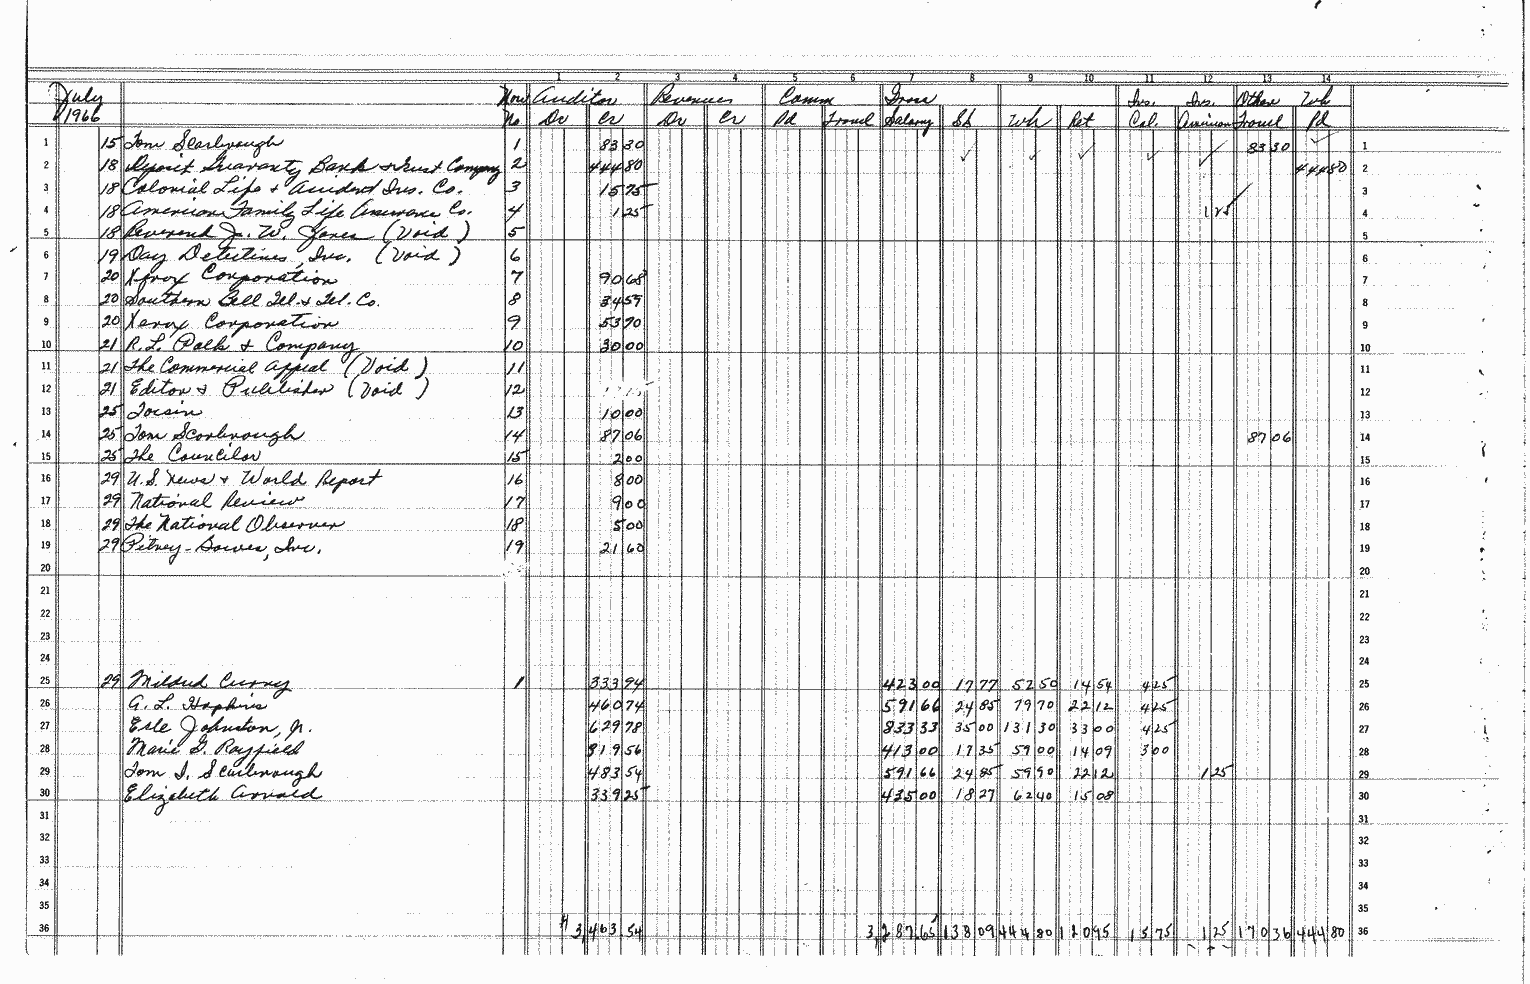 1 2 3 4 5 6 7 8 9 10 11 12 13 14
July Auditor Revenues Comm Gross Ins. Ins. Other Wh
1966 No Dr Cr Dr Cr Pd Travel Salary SS Wh Ret Col. American Travel Pd
1 15 Tom Scarbrough 1 83 30 83 30 1
2 18 Deposit Guaranty Bank & Trust Company 2 444 80 444 80 2
3 18 Colonial Life & Accident Ins. Co. 3 15 75 3
4 18 American Family Life Assurance Co. 4 1 25 1 25 4
5 18 Reverend J. W. Jones (Void) 5 5
6 19 Day Detectives, Inc. (Void) 6 6
7 20 Xerox Corporation 7 90 68 7
8 20 Southern Bell Tel. & Tel. Co. 8 34 59 8
9 20 Xerox Corporation 9 53 70 9
10 21 R. L. Polk & Company 10 30 00 10
11 21 The Commercial Appeal (Void) 11 11
12 21 Editor & Publisher (Void) 12 12
13 25 Tocsin 13 10 00 13
14 25 Tom Scarbrough 14 87 06 87 06 14
15 25 The Councilor 15 2 00 15
16 29 U.S. News & World Report 16 8 00 16
17 29 National Review 17 9 00 17
18 29 The National Observer 18 5 00 18
19 29 Pitney-Bowes, Inc. 19 21 60 19
20 20
21 21
22 22
23 23
24 24
25 29 Mildred Curry 1 333 94 423 00 17 77 52 50 14 54 4 25 25
26 A. L. Hopkins 460 74 591 66 24 85 79 70 22 12 4 25 26
27 Erle Johnston, Jr. 629 78 833 33 35 00 131 30 33 00 4 25 27
28 Marie G. Rayfield 319 56 413 00 17 35 59 00 14 09 3 00 28
29 Tom S. Scarbrough 483 54 591 66 24 85 59 90 22 12 1 25 29
30 Elizabeth Arnold 339 25 435 00 18 27 62 40 15 08 30
31 31
32 32
33 33
34 34
35 35
36 3,463 54 3,287.65 138 09 444 80 120 95 15 75 1 25 170 36 444 80 36